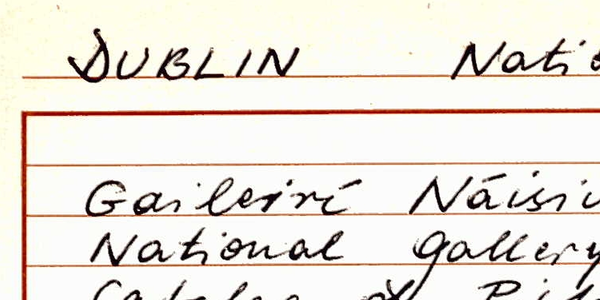 DUBLIN Natio
Gaileirí Náisiú
National Gallery
of